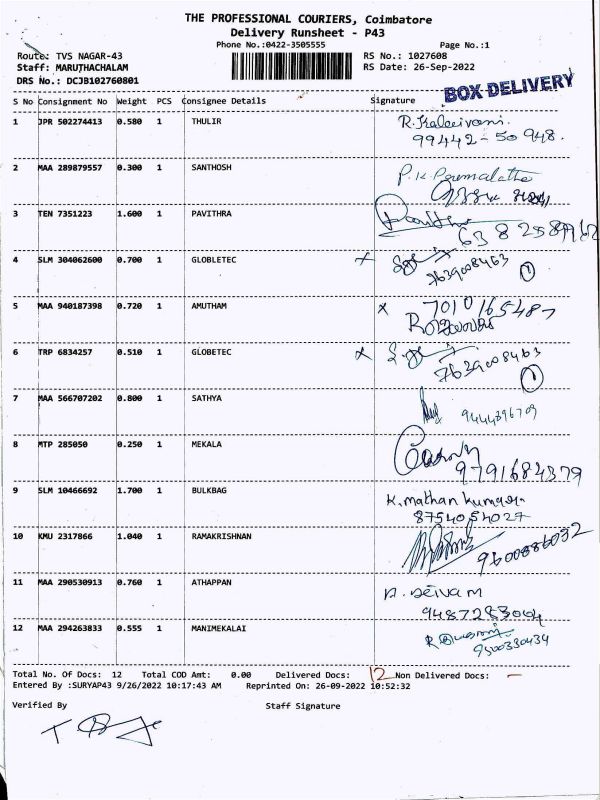 THE PROFESSIONAL COURIERS, Coimbatore
Delivery Runsheet - P43
Phone No.:0422-3505555
Page No.:1
Route: TVS NAGAR-43
RS No.: 1027608
Staff: MARUTHACHALAM
RS Date: 26-Sep-2022
DRS No.: DCJB102760801
BOX DELIVERY
S No Consignment No Weight PCS Consignee Details Signature
1 JPR 502274413 0.580 1 THULIR R. Kalaivani.
99442-50948.
2 MAA 289879557 0.300 1 SANTHOSH P.K. Premalatha
3 TEN 7351223 1.600 1 PAVITHRA Pavithra
4 SLM 304062600 0.700 1 GLOBLETEC x
7639008463 1
5 MAA 940187398 0.720 1 AMUTHAM x 7010165487
6 TRP 6834257 0.510 1 GLOBETEC x
7639008463 1
7 MAA 566707202 0.800 1 SATHYA 9444396709
8 MTP 285050 0.250 1 MEKALA
9791684379
9 SLM 10466692 1.700 1 BULKBAG K. mathan kumar
8754054027
10 KMU 2317866 1.040 1 RAMAKRISHNAN 9600886032
11 MAA 290530913 0.760 1 ATHAPPAN A. Deivam
9487283064
12 MAA 294263833 0.555 1 MANIMEKALAI
9500330434
Total No. Of Docs: 12 Total COD Amt: 0.00 Delivered Docs: 12 Non Delivered Docs: -
Entered By :SURYAP43 9/26/2022 10:17:43 AM Reprinted On: 26-09-2022 10:52:32
Verified By Staff Signature